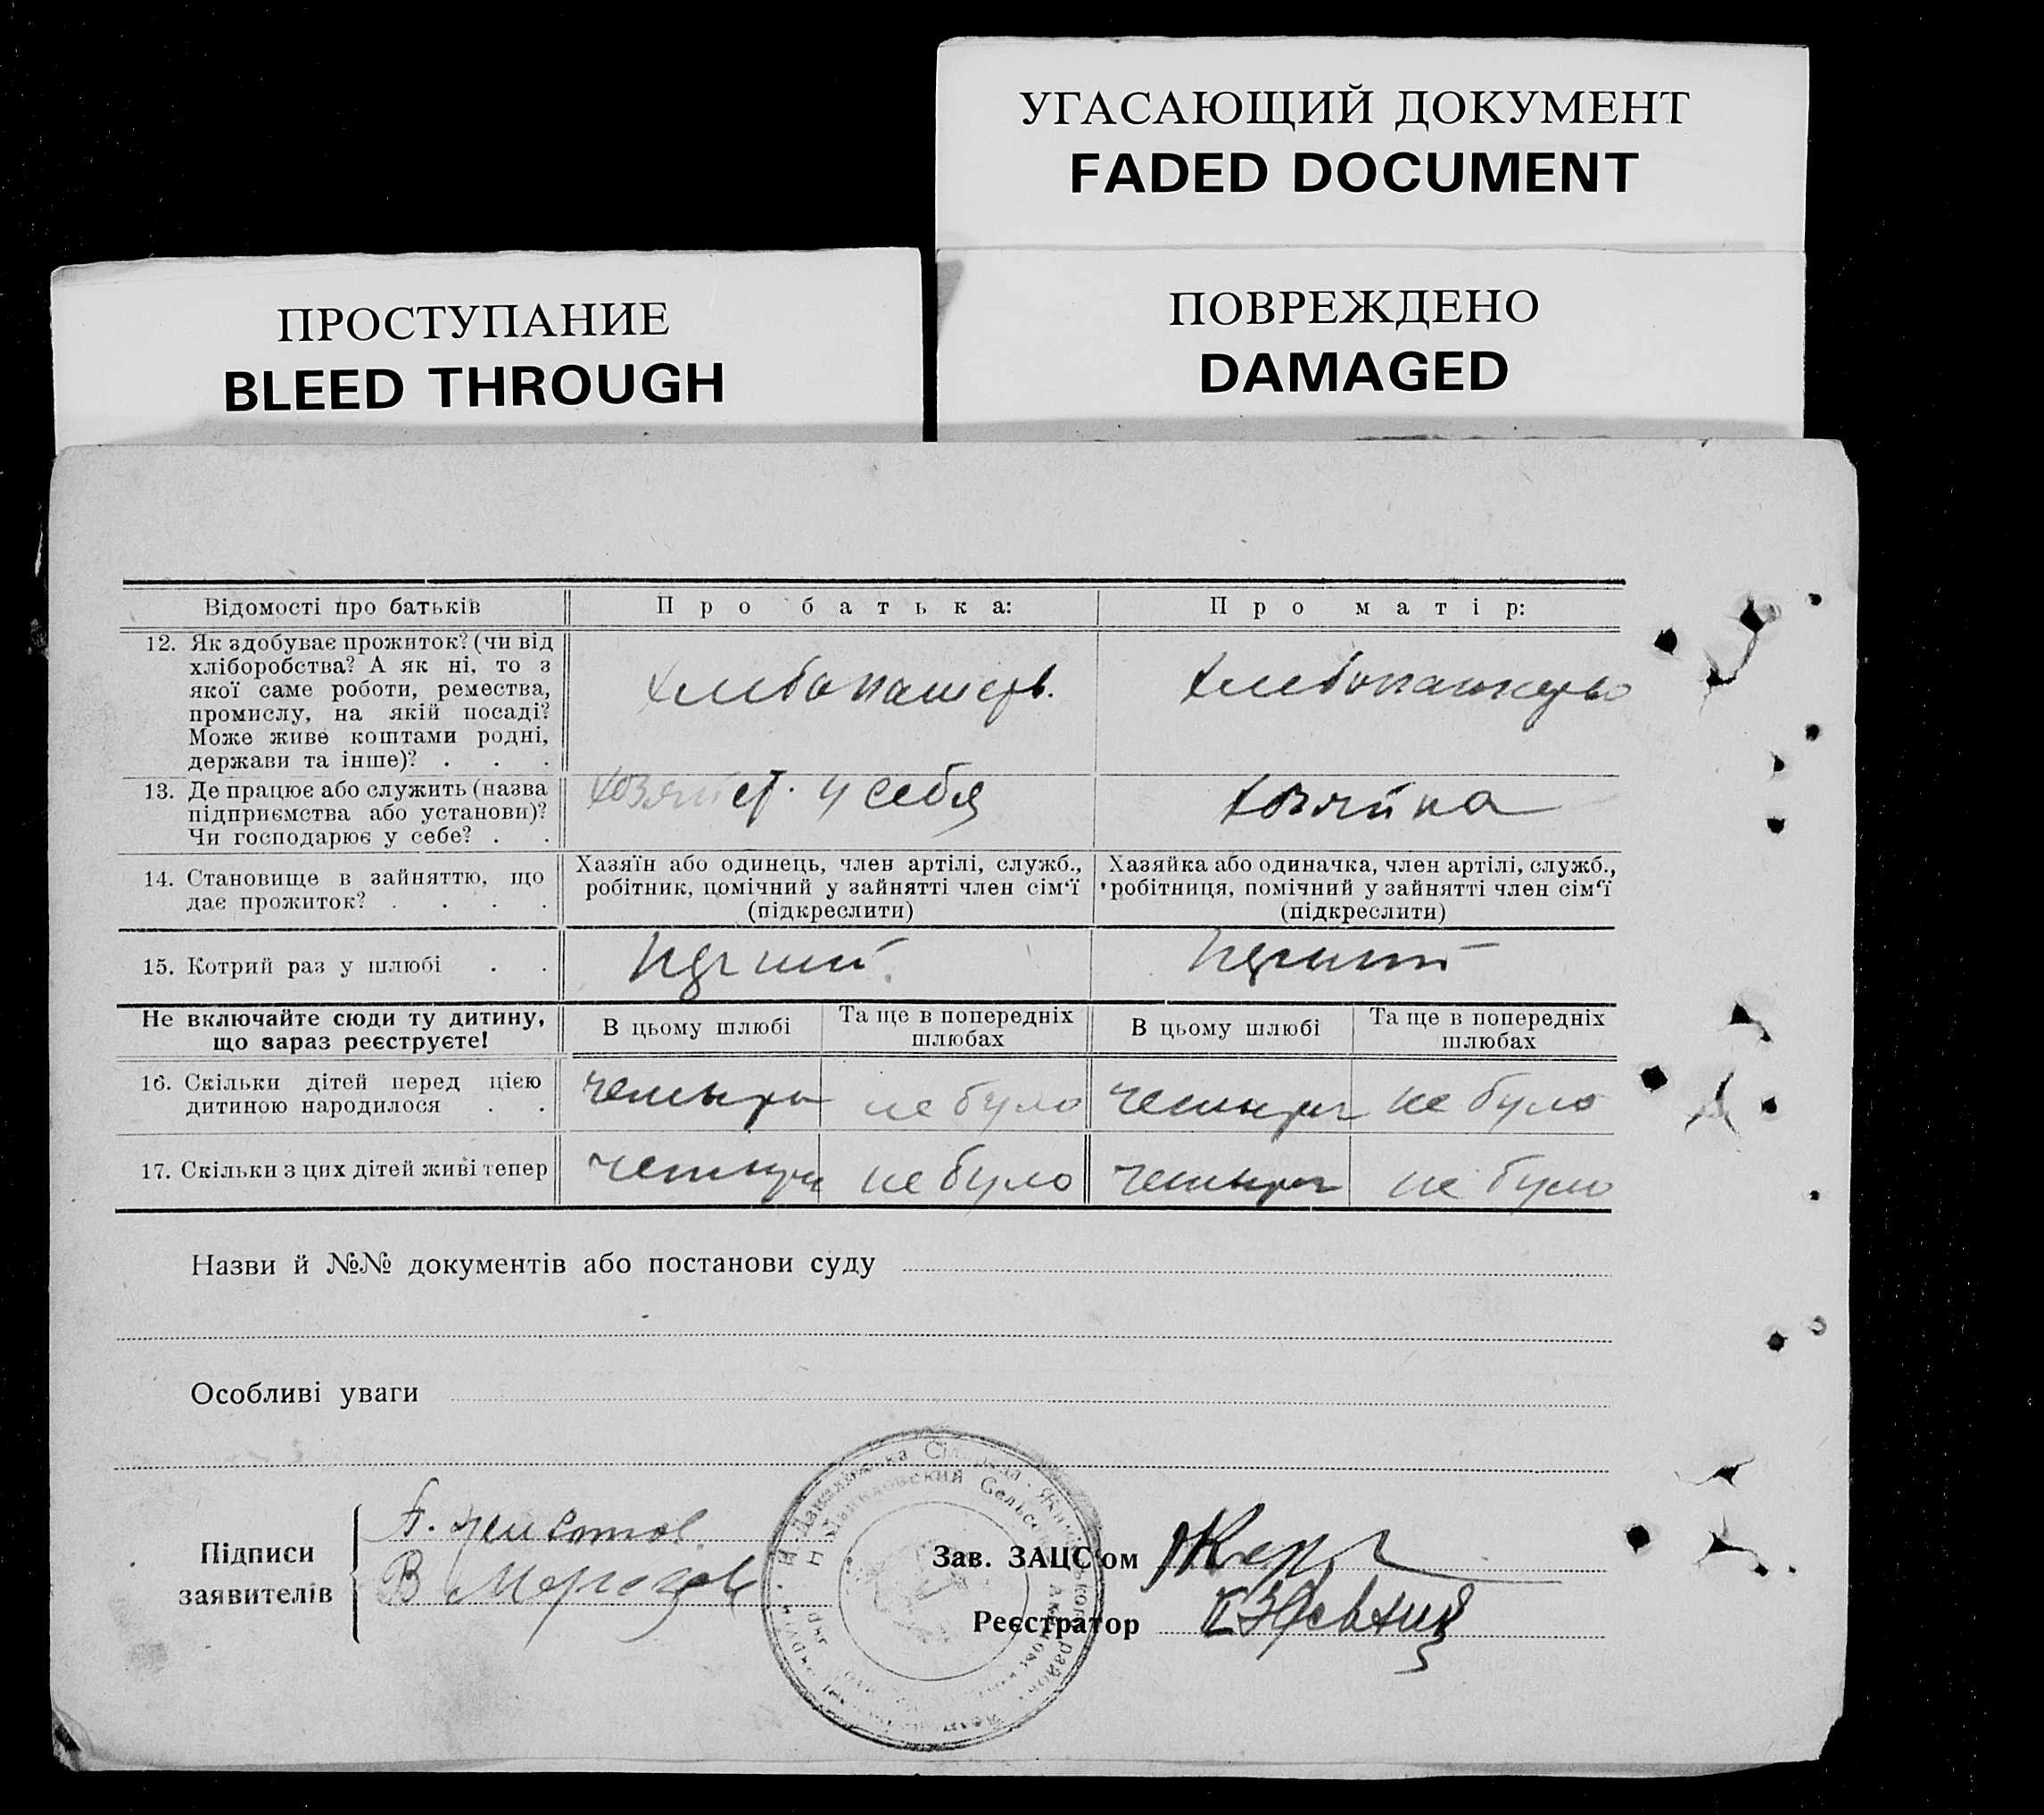 УГАСАЮЩИЙ ДОКУМЕНТ
FADED DOCUMENT
ПРОСТУПАНИЕ
BLEED THROUGH
ПОВРЕЖДЕНО
DAMAGED
Відомості про батьків
Про батька:
Про матір:
12. Як здобуває прожиток? (чи від
хліборобства? А як ні, то з
якої саме роботи, ремества,
промислу, на якій посаді?
Може живе коштами родні,
держави та інше)? . . .
13. Де працює або служить (назва
підприємства або установи)?
Чи господарює у себе? . .
у себя
хозяйка
14. Становище в зайняттю, що
дає прожиток? . . . .
Хазяїн або одинець, член артілі, служб.,
робітник, помічний у зайнятті член сім'ї
(підкреслити)
Хазяйка або одиначка, член артілі, служб.,
робітниця, помічний у зайнятті член сім'ї
(підкреслити)
15. Котрий раз у шлюбі . .
перший
перший
Не включайте сюди ту дитину,
що зараз реєструєте!
В цьому шлюбі
Та ще в попередніх
шлюбах
В цьому шлюбі
Та ще в попередніх
шлюбах
16. Скільки дітей перед цією
дитиною народилося . .
четыри
не було
четыри
не було
17. Скільки з цих дітей живі тепер
четыри
не було
четыри
не було
Назви й №№ документів або постанови суду
Особливі уваги
Підписи
заявителів
Зав. ЗАЦС'ом
Реєстратор